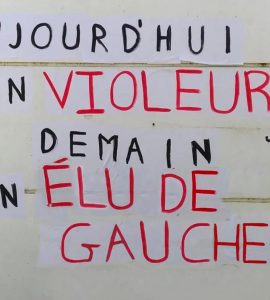 JOURD'HUI
N VIOLEUR
DEMAIN
N ÉLU DE
GAUCHE